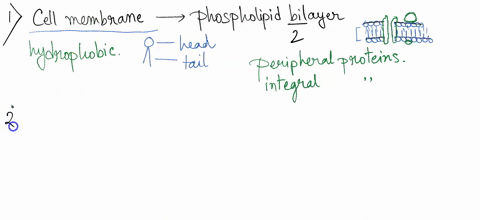 1) Cell membrane → phospholipid bilayer
2
hydrophobic.
head
tail
peripheral proteins.
integral "
2